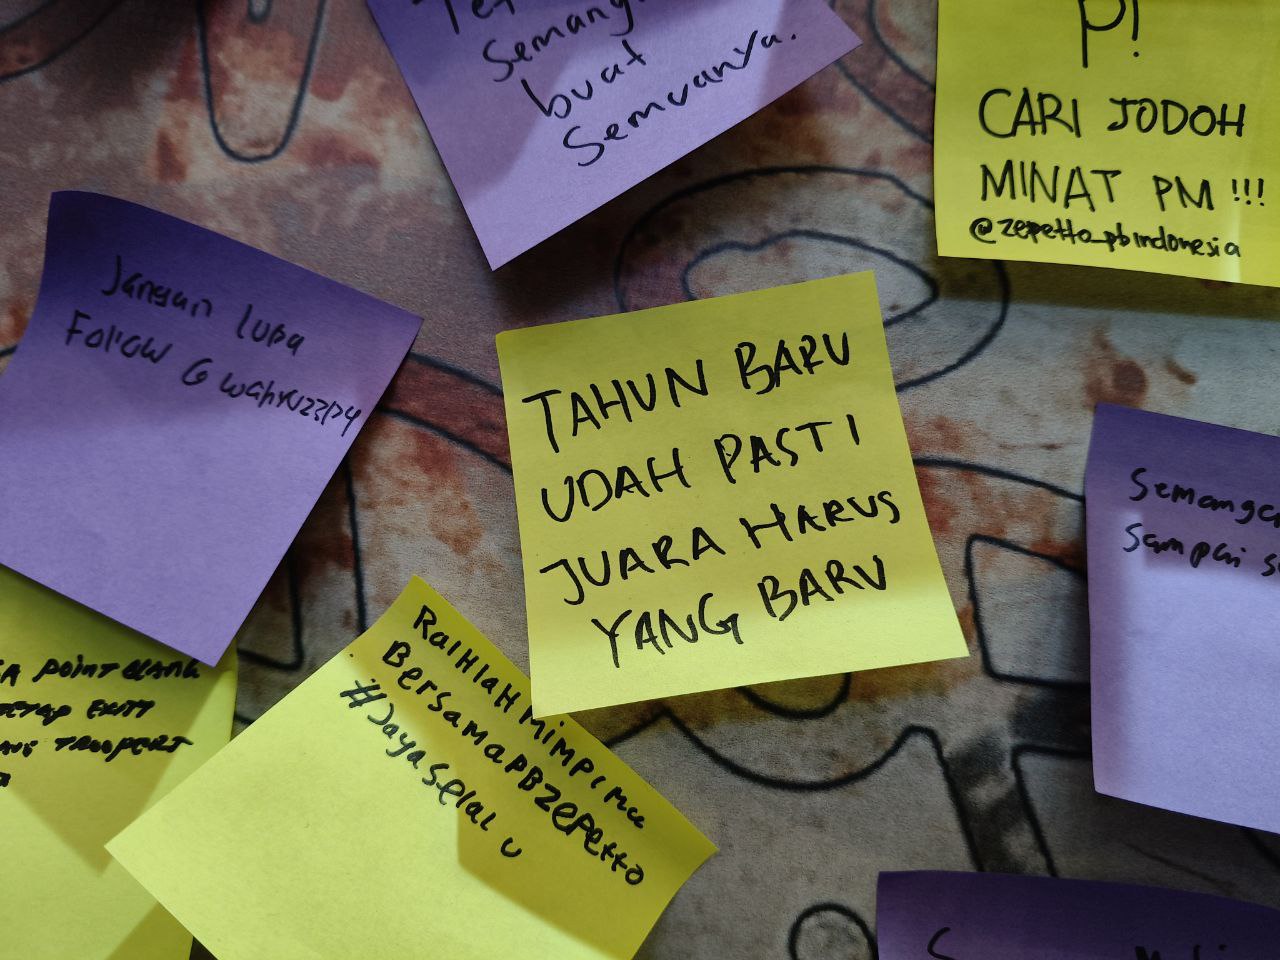 semang
buat
semuanya.
P!
CARI JODOH
MINAT PM !!!
@zepetto_pbindonesia
Jangan lupa
Follow @wahyuzzpy
TAHUN BARU
UDAH PASTI
JUARA HARUS
YANG BARU
Semanga
Sampai s
POINT BLANK
TROOPERS
RaIHlaH MIMPI mu
Bersama PBZepetto
#Jaya selalu